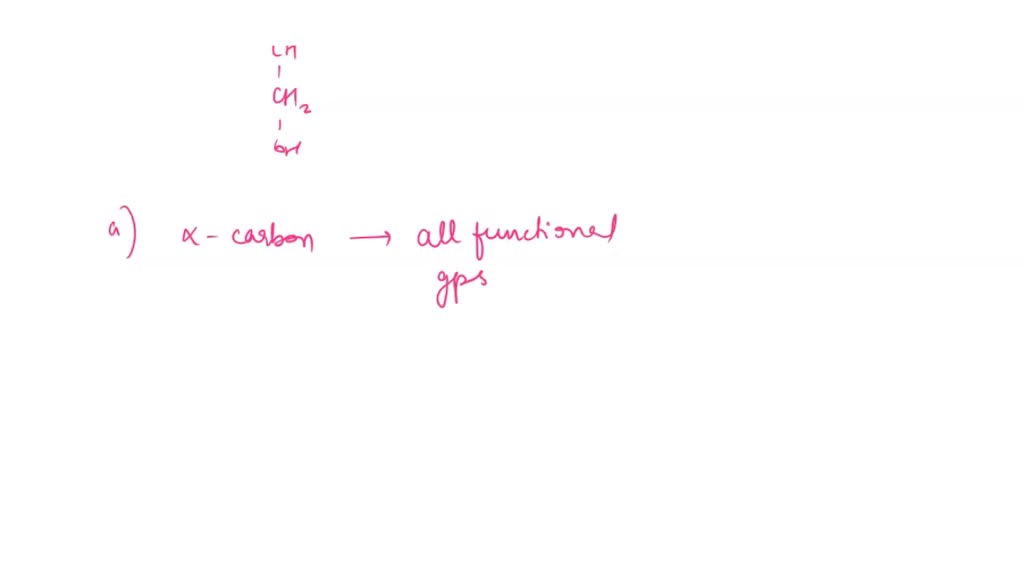 CH2
a) α - carbon → all functional
gps